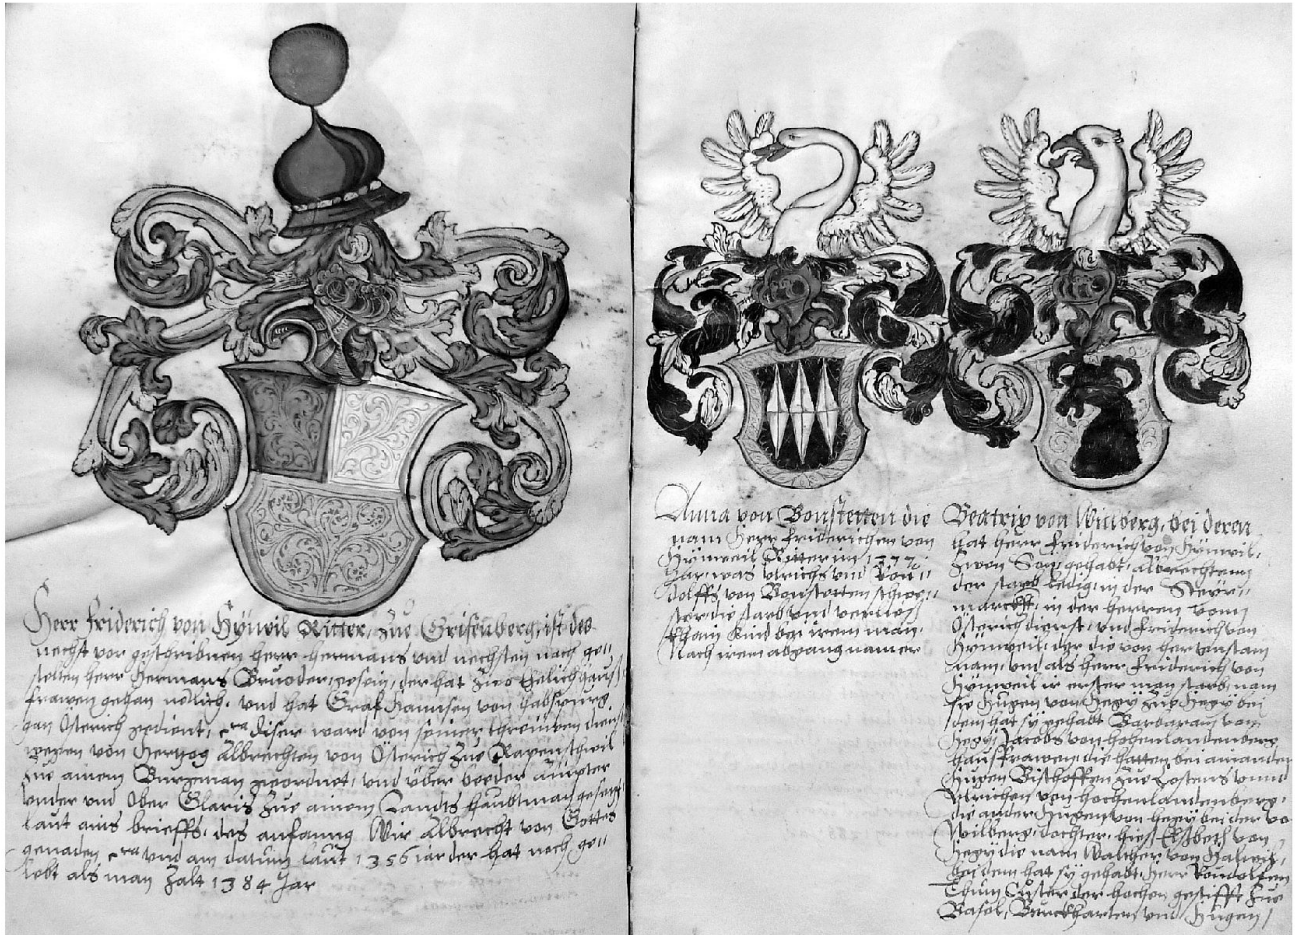 Herr Friderich von Hÿnwil Ritter, Zue Grifenberg, ist des
nechst vor gestorbnen herr hermans und nechsten noch ge¬
stelten herr Hermans Bruoder gesein, der hat zwo Eelich haus¬
frawen gehan nölich, und hat Graf hannsen von habspurg
han Osterich gedient, diser ward von seiner threüwen dien¬
wegen von Hertzog Albrechten von Österich Zue Rapenschwil
Zue ainem Burgman geordnet, und über beeder Ämpter
Under und Ober Glaris Zue ainem Landts haubtman gesetzt,
laut ains brieffs, des anfanng Wir Albrecht von Gottes
genaden, und am datum laut 1356 iar der hat noch ge¬
lebt als man Zalt 1384 Jar
Anna von Bonstetten die
nam Herr Friderichen von
Hÿnweil Ritter im
Jar, was Ulrichs und Ruo¬
dolffs von Bonstetten schwe¬
ster die starb und verließ
khain kind bei irem man.
Nach irem abgang nam er
Beatrix von Wilberg, bei deren
hat herr Friderich von Hÿnwil,
Zwen Sün gehabt, Albrechten
der starb ledig, in der Steÿr¬
marckh, in der herren vonn
Osterich dienst, und Friderich von
Hÿnweil, der die von
nam, und als herr Friderich von
Hÿnweil ir erster man starb, nam
sie Hugen von Hegÿ Zue Hegÿ bei
dem hat sÿ gehabt Barbaram von
Hegÿ, Jacobs von hohenlandenberg
haus frawen, die hatten bei ainanden
Hugen Bischoffen Zue Costens unnd
Ulrichen von hochenlandenberg.
die ander Hugen von Hegÿ bei der vo
Wilberg, dochter, hieß Elsbeth von
Hegÿ die nam Walther von Halwil,
bei dem hat sÿ gehabt, Herr Ruodolfen
Thum Custer der hochen gestifft Zue
Basel, Burckharten und Hugen